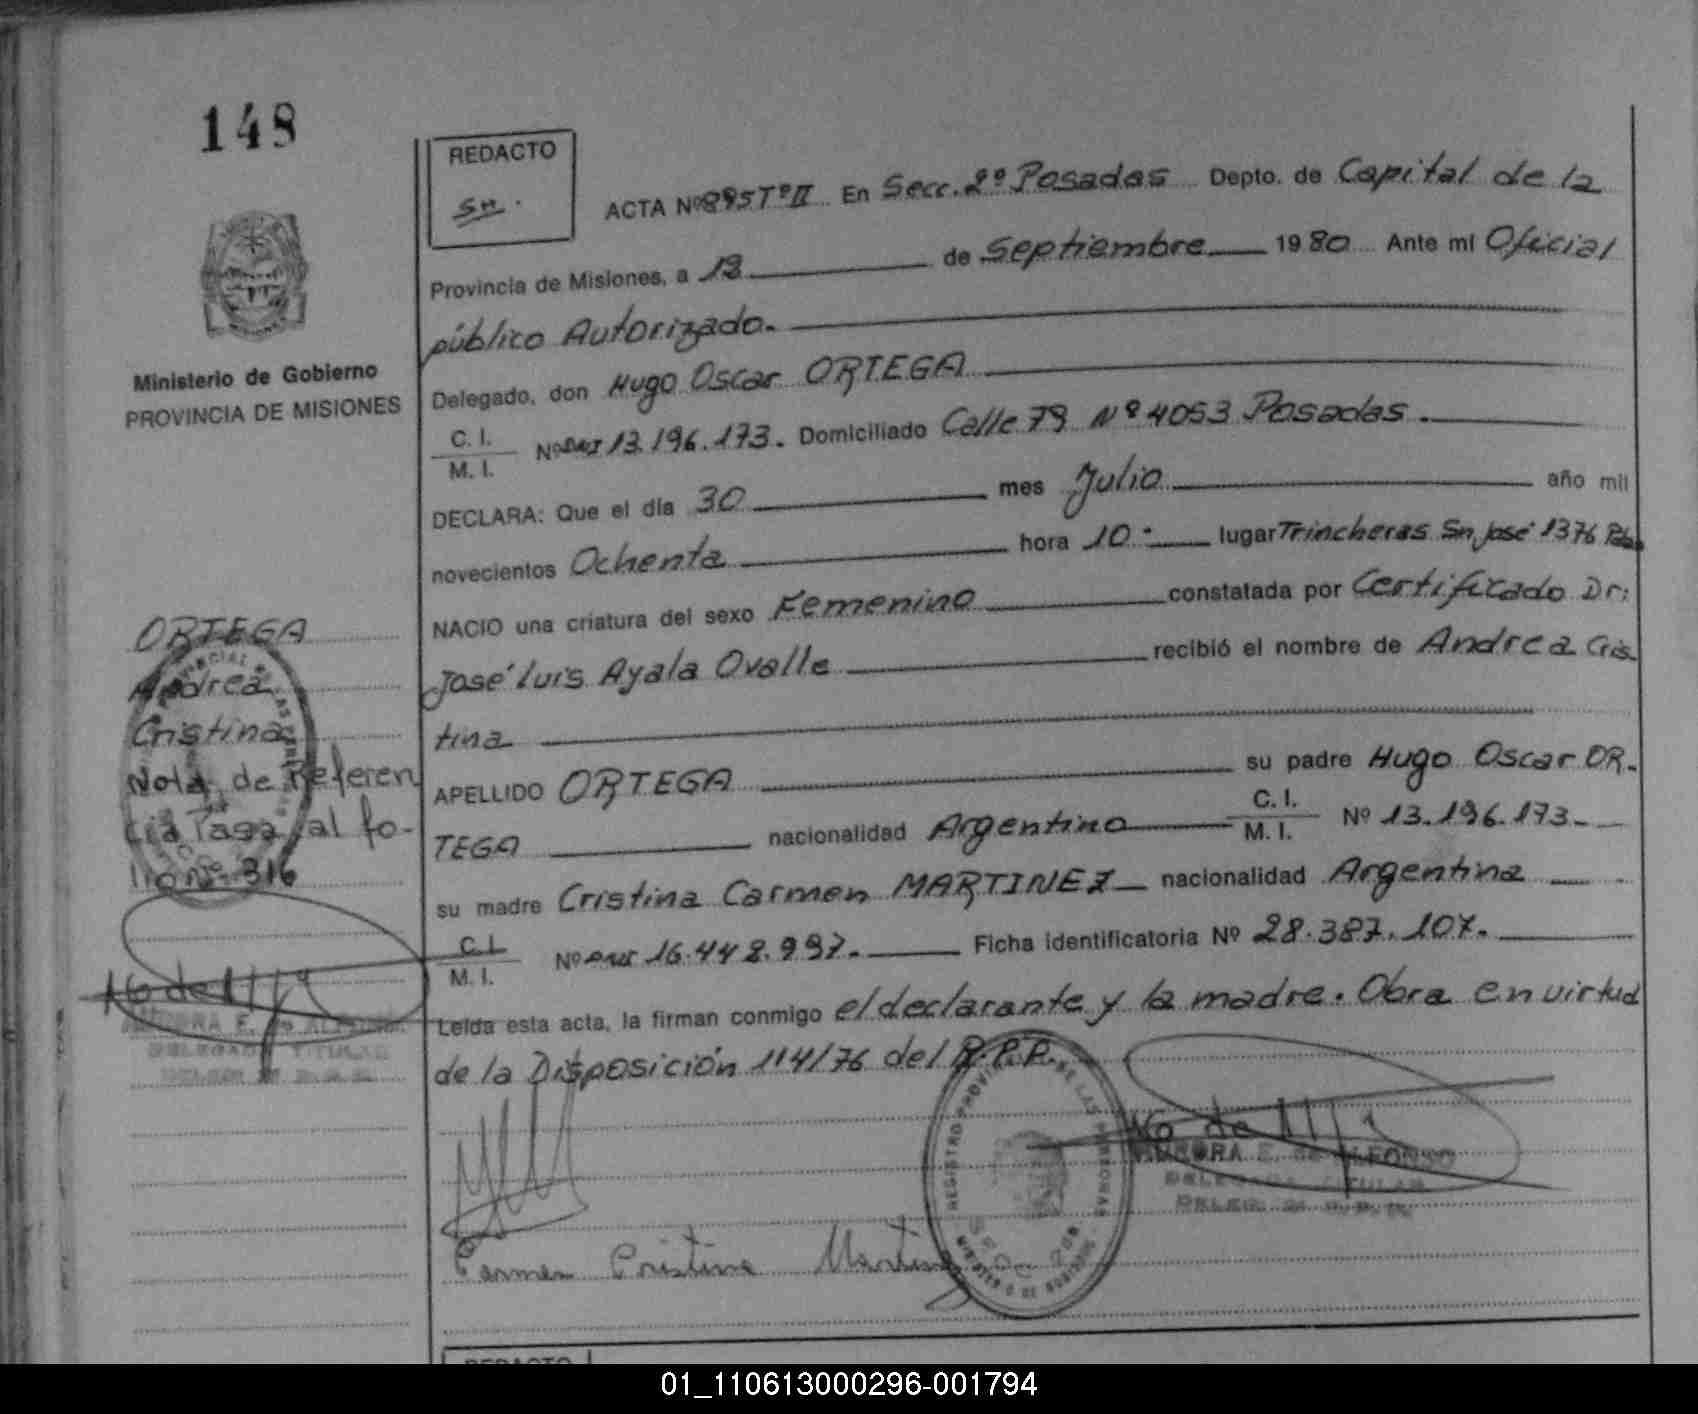 148
REDACTO
ACTA Nº 895 Tº II En Secc. 2º Posadas Depto. de Capital de la
Provincia de Misiones, a 18 de Septiembre 1980 Ante mi Oficial
público Autorizado.
Delegado, don Hugo Oscar ORTEGA
C. I.
M. I.
Nº 13.196.173. Domiciliado Calle 79 Nº 4053 Posadas.
DECLARA: Que el día 30 mes Julio año mil
novecientos Ochenta hora 10 lugar Trincheras Sn. José 1376
NACIO una criatura del sexo Femenino constatada por Certificado Dr:
José Luis Ayala Ovalle recibió el nombre de Andrea Cris
tina
APELLIDO ORTEGA su padre Hugo Oscar OR.
TEGA nacionalidad Argentino C. I. M. I. Nº 13.196.173.
su madre Cristina Carmen MARTINEZ nacionalidad Argentina
C. I.
M. I.
Nº 16.448.997. Ficha identificatoria Nº 28.387.107.
Leída esta acta, la firman conmigo el declarante y la madre. Obra en virtud
de la Disposición 114/76 del R.P.P.
Carmen Cristina Martinez
AURORA E. de ALFONSO
DELEGADA TITULAR
REGISTRO PROVINCIAL DE LAS PERSONAS
Ministerio de Gobierno
PROVINCIA DE MISIONES
ORTEGA
Andrea
Cristina
Nota de Referen
cia Pasa al fo-
lio nº 316
AURORA E. de ALFONSO
DELEGADA TITULAR
REDACTO
01_110613000296-001794